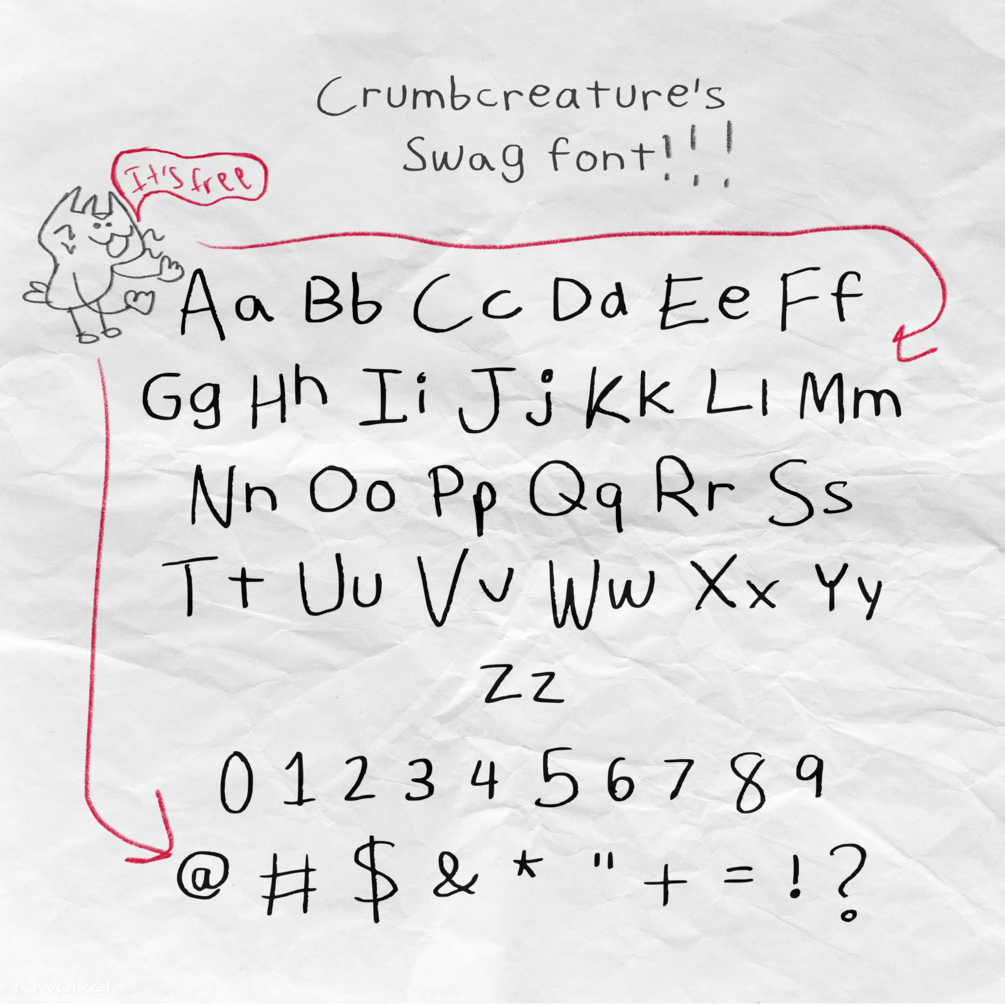 Crumbcreature's
Swag font!!!
It's free
Aa Bb Cc Dd Ee Ff
Gg Hh Ii Jj Kk Ll Mm
Nn Oo Pp Qq Rr Ss
Tt Uu Vv Ww Xx Yy
Zz
0 1 2 3 4 5 6 7 8 9
@ # $ & * " + = ! ?
rawpixel